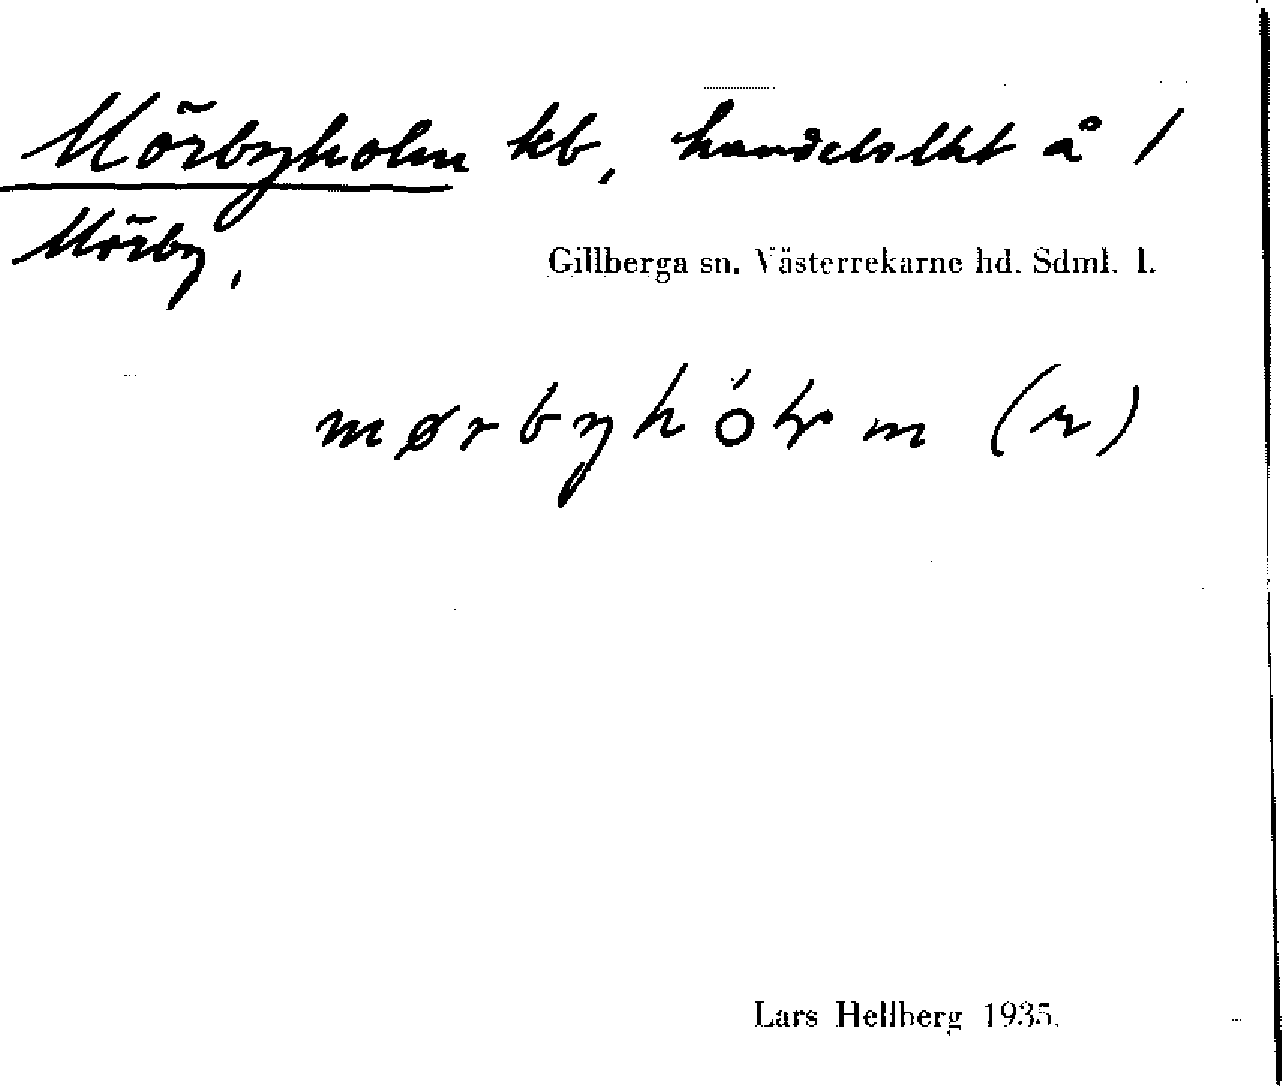 Mörbyholm kb, handelslht å /
Mörby,
Gillberga sn. Västerrekarne hd. Sdml. l.
mørbyhólm (r)
Lars Hellberg 1935.